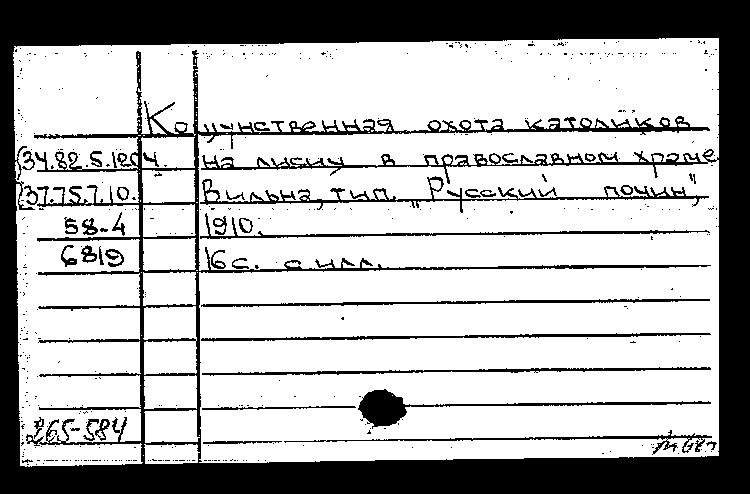 Кощунственная охота католиков
34.82.5.1204. на лисицу в православном храме
37.75.7.10. Вильна, тип. „Русский почин",
58-4 1910.
6819 16 с. с илл.
265-584